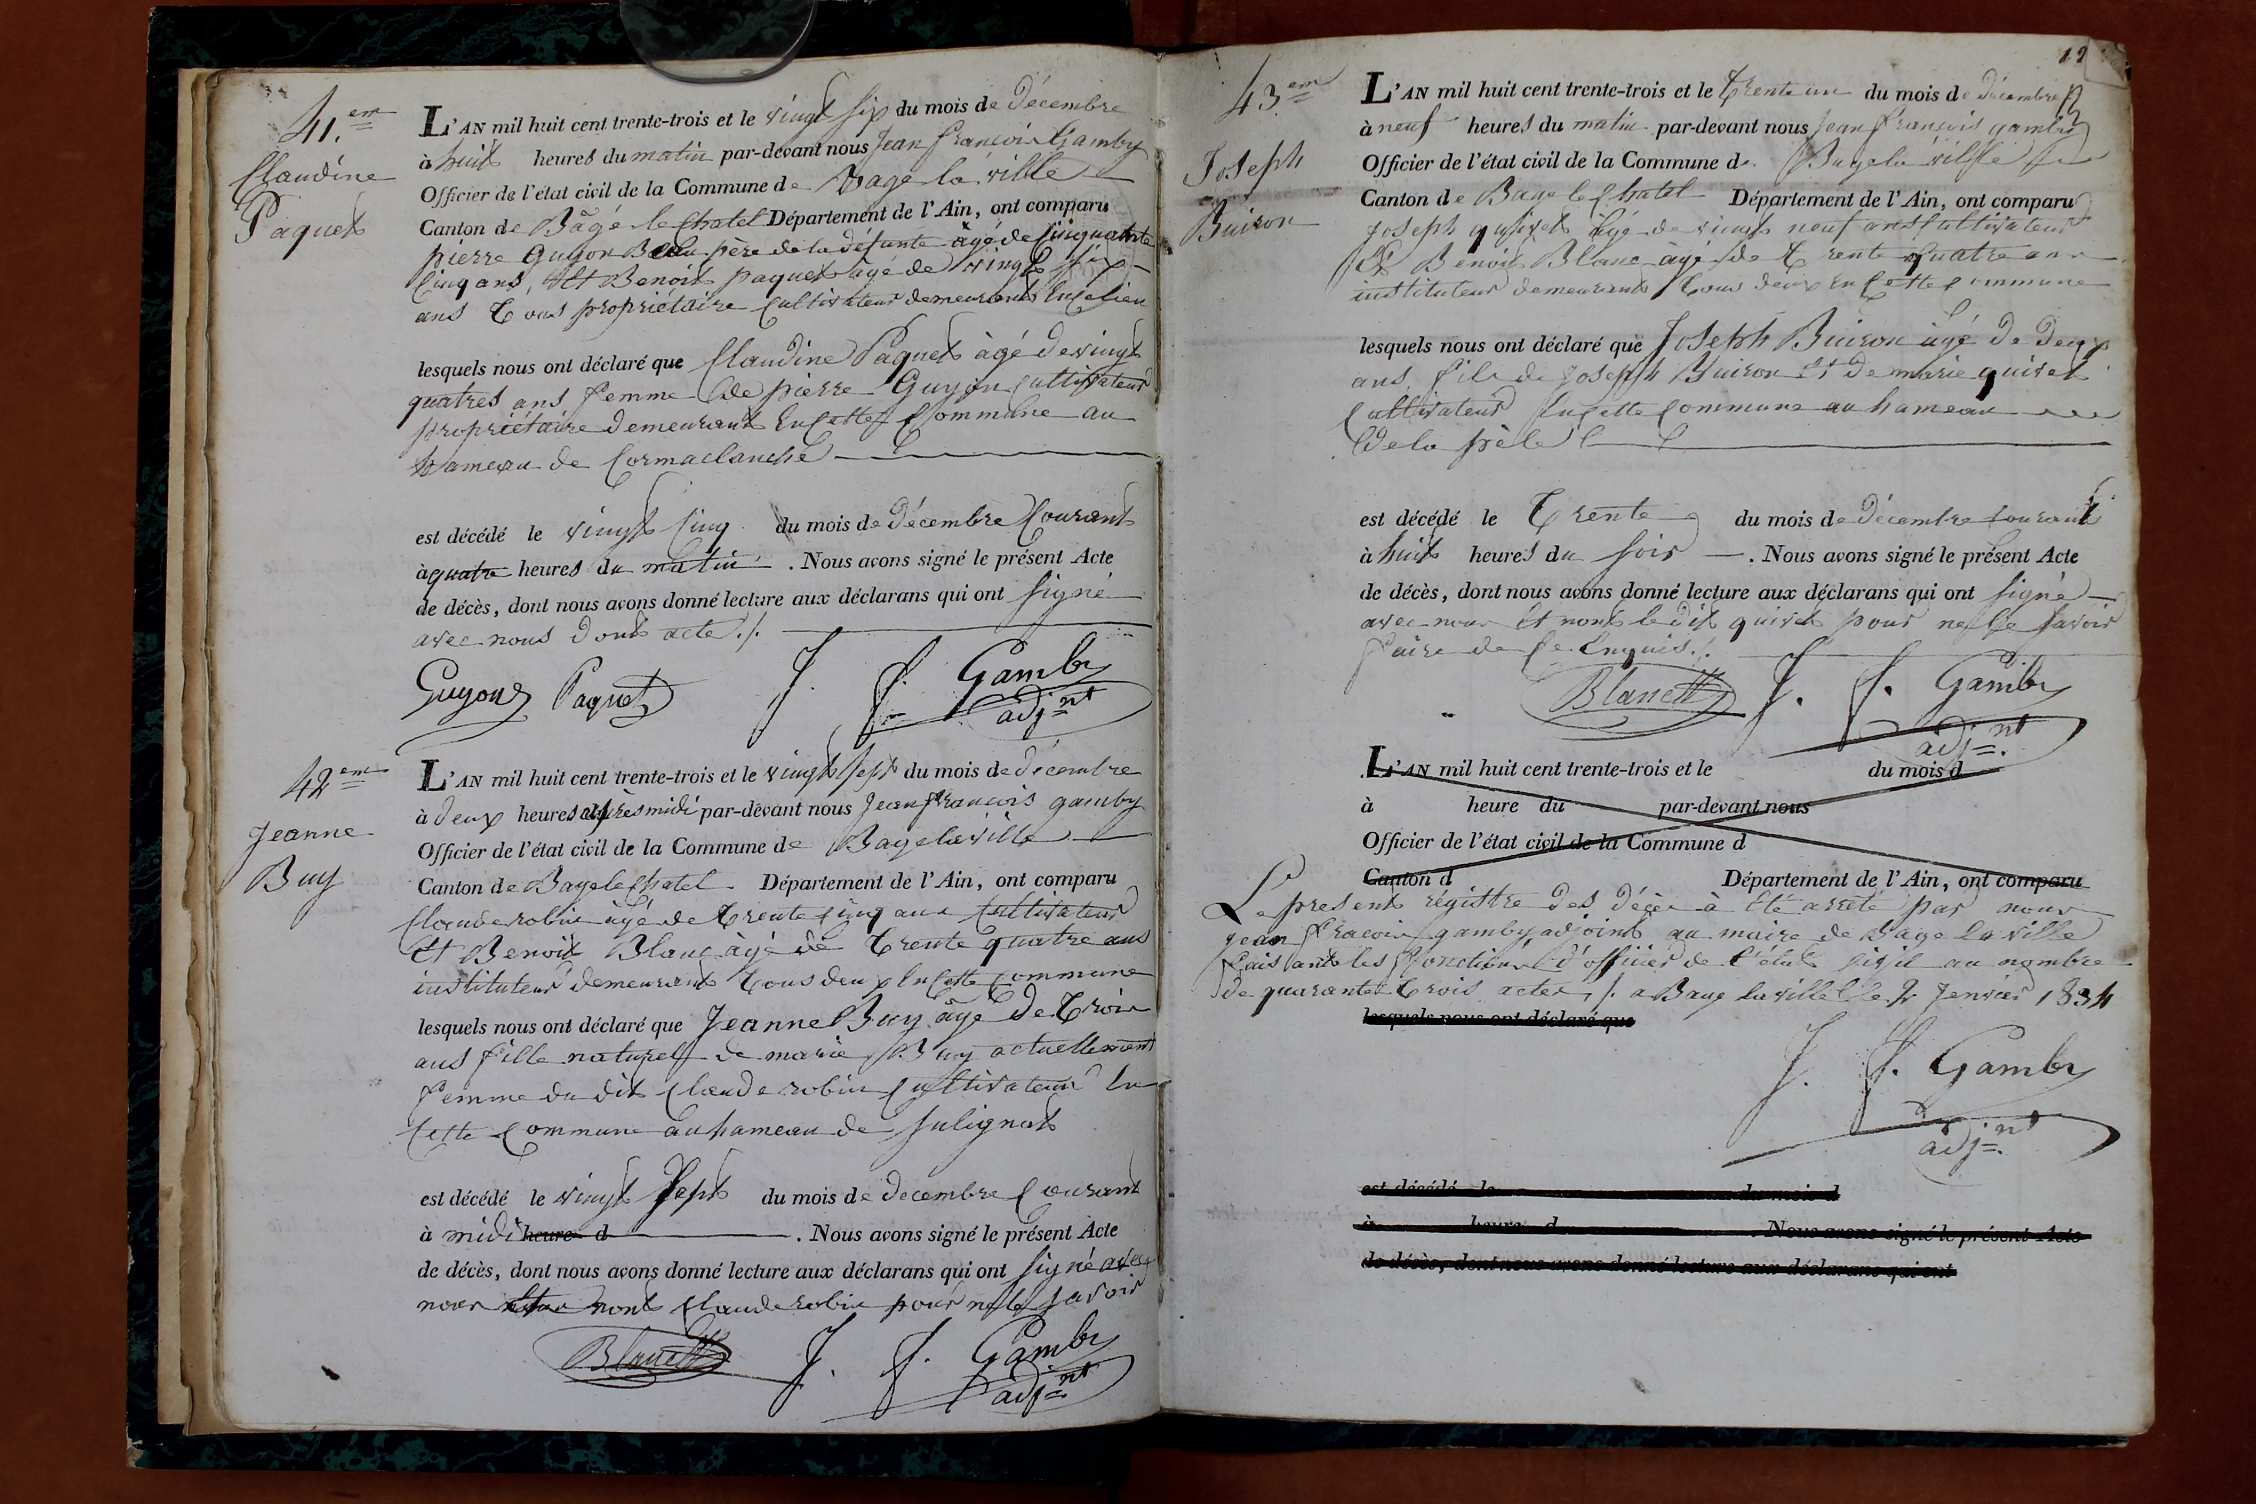 41.em
Claudine
Paquet
L'AN mil huit cent trente-trois et le vingt six du mois de décembre
à huit heures du matin par-devant nous Jean françois Gamby
Officier de l'état civil de la Commune de Bage la ville
Canton de Bâgé le Chatel Département de l'Ain, ont comparu
pierre Guyon Beau père de la défunte âgé de Cinquante
Cinq ans, Et Benoit paquet âgé de vingt six
ans Tous propriétaire Cultivateur demeurant En ce lieu
lesquels nous ont déclaré que Claudine Paquet âgé de vingt
quatres ans femme de pierre Guyon Cultivateur
propriétaire demeurant En Cette Commune au
hameau de Cormaclanche
est décédé le vingt Cinq du mois de décembre Courant
à quatre heures du matin . Nous avons signé le présent Acte
de décès, dont nous avons donné lecture aux déclarans qui ont signé
avec nous dont acte ./.
Guyon Paquet J. f. Gamby
adj.nt
42em
Jeanne
Buy
L'AN mil huit cent trente-trois et le vingt sept du mois de décembre
à deux heures après midi par-devant nous Jean françois gamby
Officier de l'état civil de la Commune de Bage la ville
Canton de Bage le Chatel Département de l'Ain, ont comparu
Claude robin âgé de trente cinq ans Cultivateur
Et Benoit Blanc âgé de trente quatre ans
instituteur demeurant tous deux En Cette Commune
lesquels nous ont déclaré que Jeanne Buy âgé de trois
ans fille naturel de marie Buy actuellement
femme du dit Claude robin Cultivateur En
Cette Commune au hameau de Julignat
est décédé le vingt sept du mois de decembre Courant
à midi heure d . Nous avons signé le présent Acte
de décès, dont nous avons donné lecture aux déclarans qui ont signé avec
nous nont Claude robin pour ne le savoir
Blanc J. f. Gamby
adj.nt
12
43em
Joseph
Buiron
L'AN mil huit cent trente-trois et le Trente un du mois de décembre
à neuf heures du matin par-devant nous Jean françois gamby
Officier de l'état civil de la Commune d Bage la ville
Canton de Bage le Chatel Département de l'Ain, ont comparu
Joseph quivet âgé de vingt neuf ans Cultivateur
Et Benoit Blanc âgé de Trente quatre ans
instituteur demeurant tous deux En Cette Commune
lesquels nous ont déclaré que Joseph Buiron âgé de deux
ans fils de Joseph Buiron Et de marie quivet
Cultivateur En Cette Commune au hameau
De la
est décédé le Trente du mois de décembre Courant
à huit heures du soir . Nous avons signé le présent Acte
de décès, dont nous avons donné lecture aux déclarans qui ont signé
avec nous Et nont le dit quivet pour ne le savoir
faire de Ce Enquis ./.
Blanc J. f. Gamby
adj.nt
L'AN mil huit cent trente-trois et le du mois d
à heure du par-devant nous
Officier de l'état civil de la Commune d
Canton d Département de l'Ain, ont comparu
Le present régistre des décès à été arreté par nous
Jean fracois gamby adjoint au maire de Bage la ville
faisant les fonctions d'officier de l'état Civil au nombre
de quarante trois actes ./. a Bage la ville le 2 Jenvier 1834
lesquels nous ont déclaré que
J. f. Gamby
adj.nt
est décédé le du mois d
à heure d . Nous avons signé le présent Acte
de décès, dont nous avons donné lecture aux déclarans qui ont